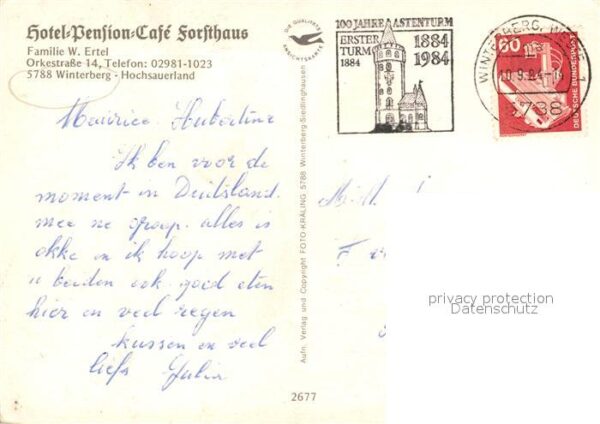 Hotel-Pension-Café Forsthaus
Familie W. Ertel
Orkestraße 14, Telefon: 02981-1023
5788 Winterberg - Hochsauerland
Maurice Hubertine
Ik ben voor de
moment in Duitsland
mee ne groep. alles is
okke en ik hoop met
u beiden ook. goed eten
hier en veel regen
kussen en veel
liefs Julia
DIE QUALITÄTS
ANSICHTSKARTE
Aufn. Verlag und Copyright FOTO-KRÄLING 5788 Winterberg-Siedlinghausen
2677
100 JAHRE ASTENTURM
ERSTER
TURM
1884
1884
1984
WINTERBERG, WESTF 1
5788
60
DEUTSCHE BUNDESPOST
privacy protection
Datenschutz